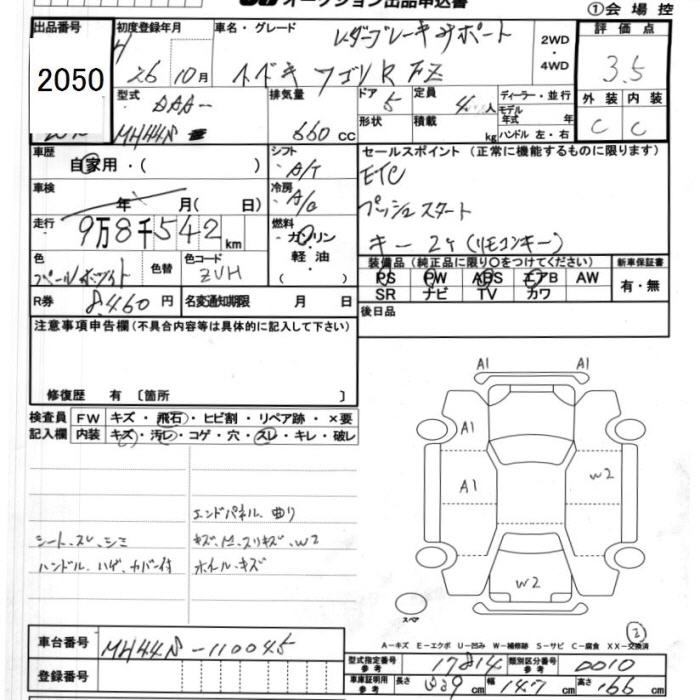 オークション出品申込書
①会場控
出品番号
2050
初度登録年月
H 26 10月
車名・グレード
レダーブレーキサポート
スズキ ワゴンR FZ
2WD
・
4WD
評価点
3.5
型式
DAA-
MH44S
排気量
660 CC
ドア 5
定員 4人
形状
積載 kg
ディーラー・並行
モデル
年式 年
ハンドル 左・右
外装
内装
C
C
車歴
自家用・( )
シフト
A/T
車検
年 月( 日)
冷房
A/C
走行
9万8千542 km
燃料
ガソリン
・
軽油
・
( )
色
パールホワイト
色替
色コード
ZVH
R券
8,460円
名変通知期限 月 日
セールスポイント(正常に機能するものに限ります)
ETC
プッシュスタート
キー 2ヶ(リモコンキー)
装備品(純正品に限り○をつけてください)
新車保証書
PS PW ABS エアB AW
SR ナビ TV カワ
有・無
後日品
注意事項申告欄(不具合内容等は具体的に記入して下さい)
修復歴 有 [箇所 ]
検査員
記入欄
FW
キズ・飛石・ヒビ割・リペア跡・×要
内装
キズ・汚レ・コゲ・穴・スレ・キレ・破レ
エンドパネル、曲り
シート、スレ、シミ
ハンドル、ハゲ、カバー付
ホイル、キズ
A1
A1
A1
A1
W2
W2
スペア
②
A-キズ E-エクボ U-凹み W-補修跡 S-サビ C-腐食 XX-交換済
車台番号
MH44S-110045
登録番号
型式指定番号
参考
17814
類別区分番号
参考
0010
車庫証明用
参考
長さ 339cm
幅 147cm
高さ 166cm